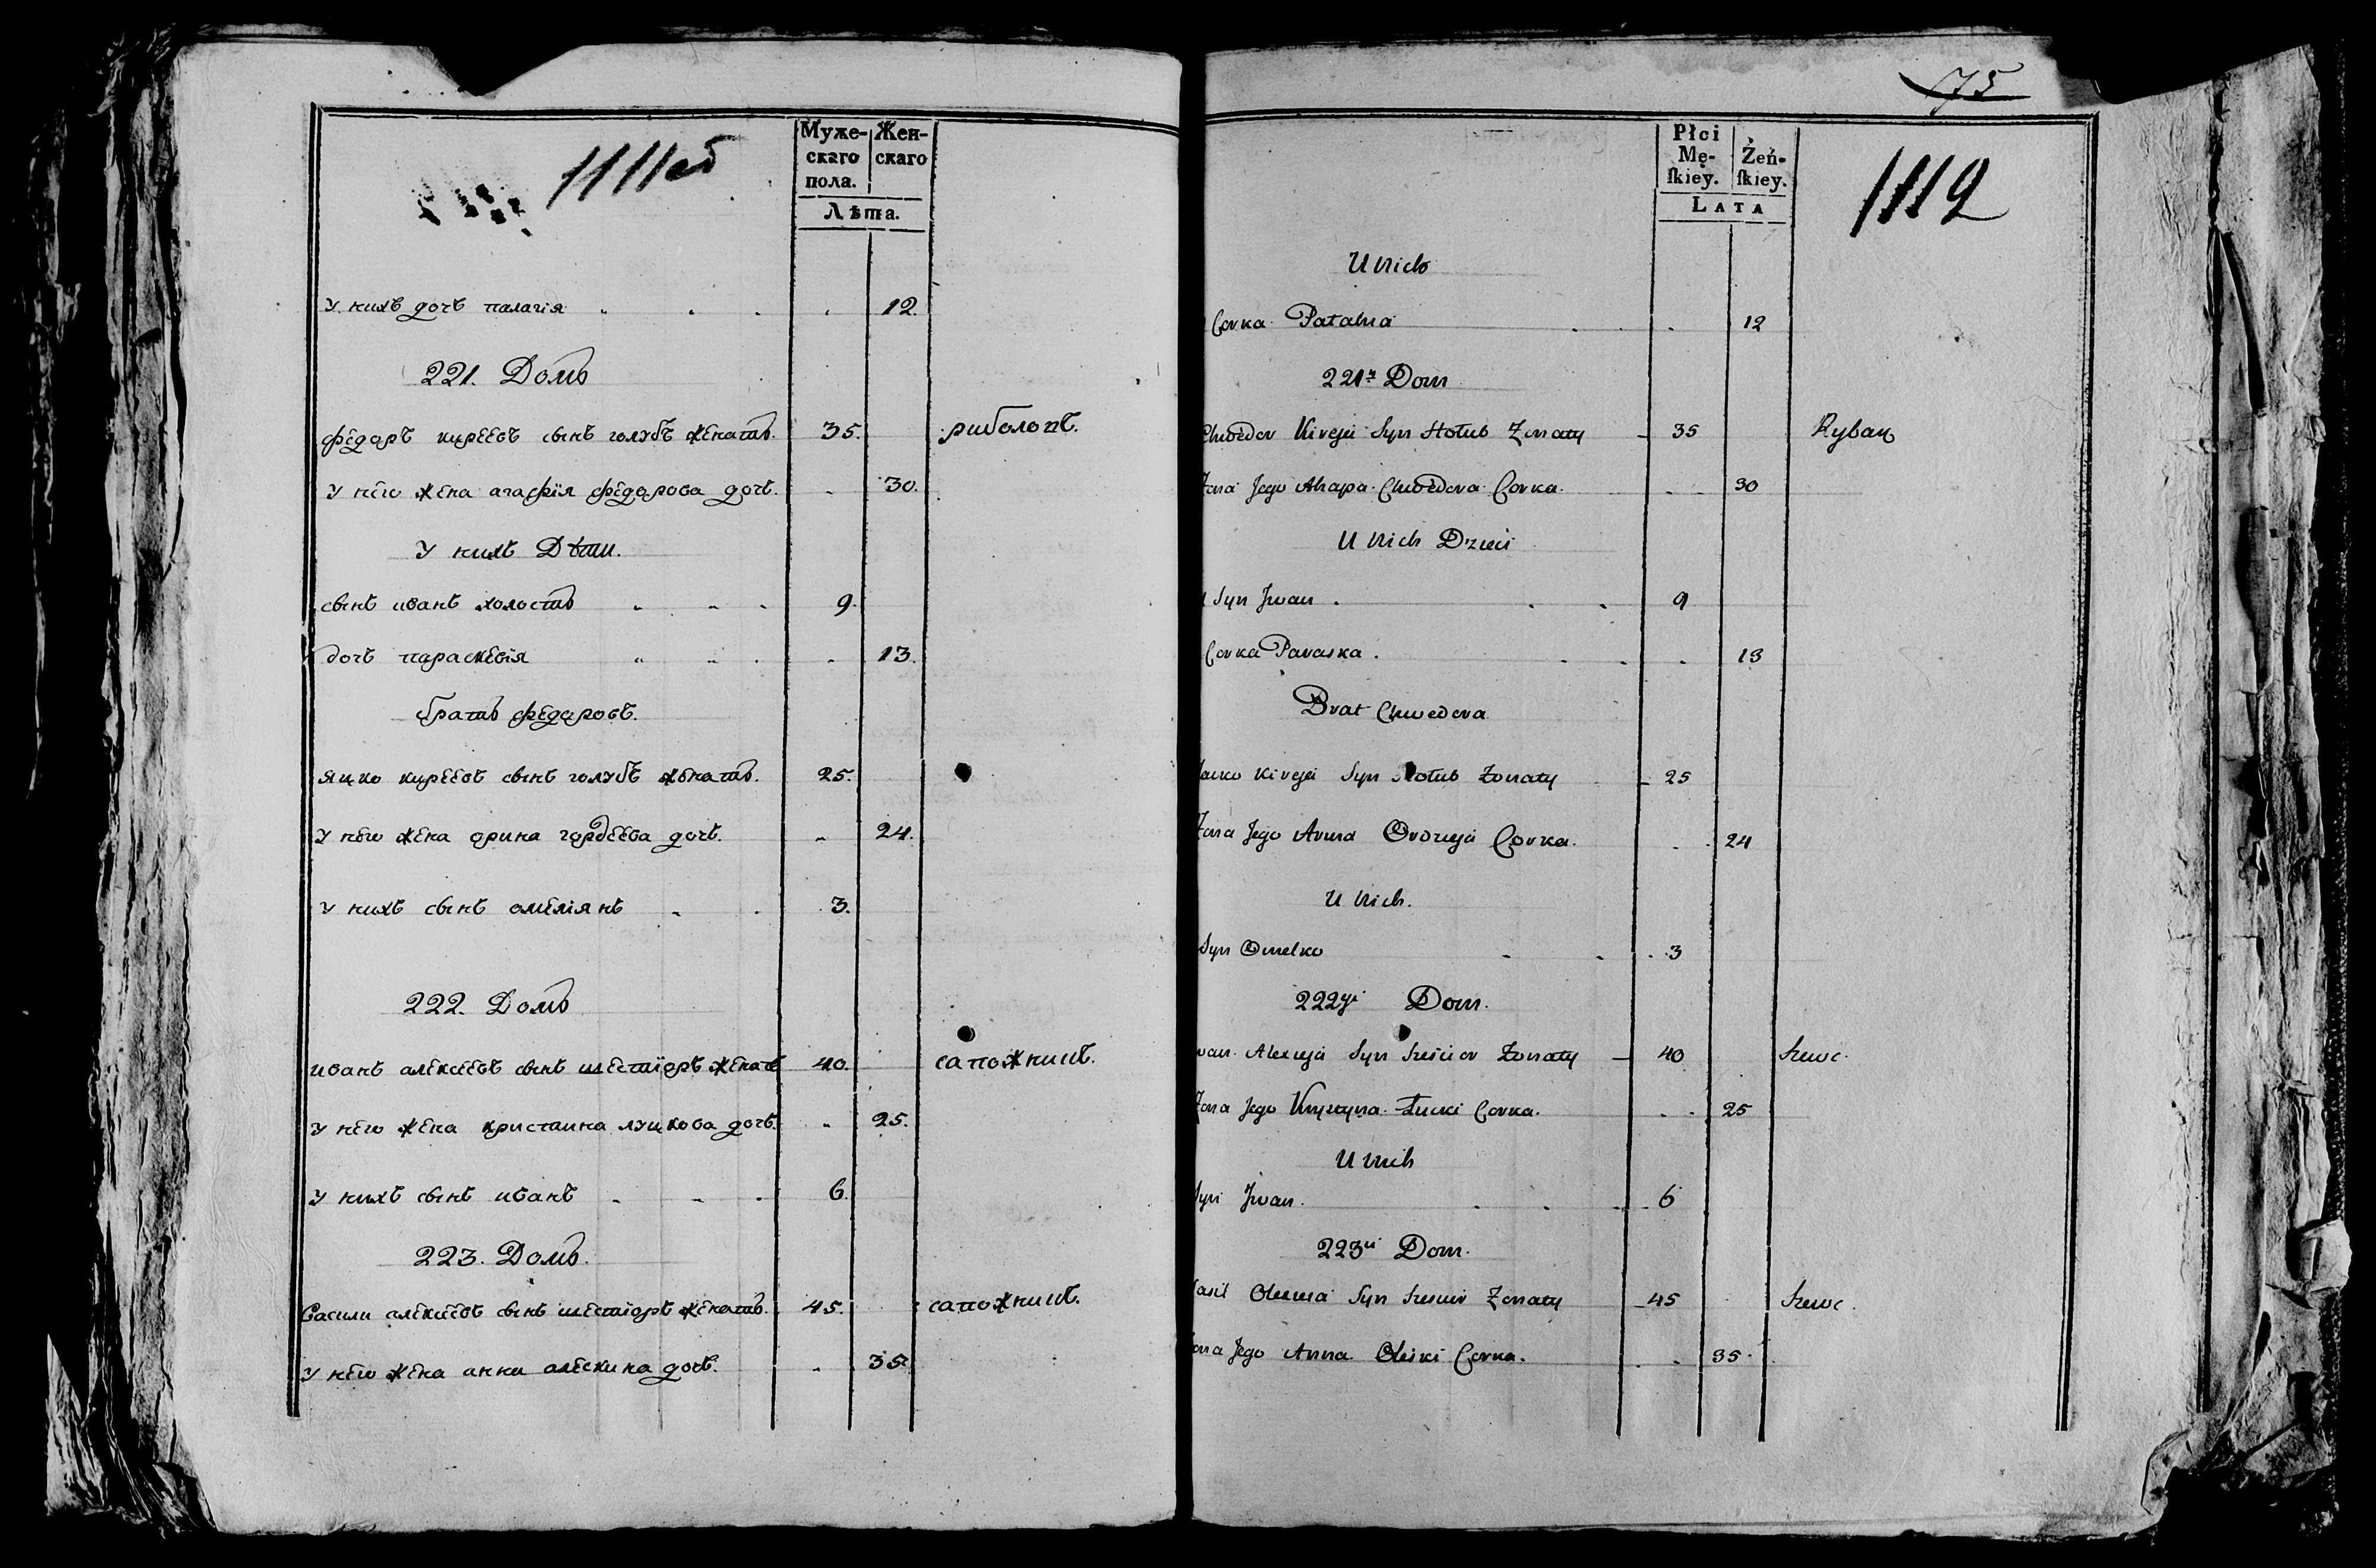 1111об
Муже-
скаго
пола.
Жен-
скаго
Лѣта.
У нихъ дочь палагія 12.
221. Домъ
федаръ киреевъ сынъ голубъ женатъ. 35. риболовъ.
у него жена агафїя федарова дочь. 30.
У нихъ Дѣти.
сынъ иванъ холостъ 9.
дочь параскевія 13.
братъ федаровъ.
яцко киреевъ сынъ голубъ женатъ. 25.
у него жена орина гордеева дочь. 24.
у нихъ сынъ омелїянъ 3.
222. Домъ
иванъ алексеевъ сынъ шестїоръ женатъ 40. сапожникъ.
у него жена кристина луцкова дочь. 25.
у нихъ сынъ иванъ 6.
223. Домъ.
Васили алексеевъ сынъ шестїоръ женатъ. 45. сапожникъ.
у него жена анна алескина дочь. 35.
75
Płci
Mę-
ſkiey.
Żeń-
ſkiey.
LATA
1112
U Nich
Corka Patahia 12
221y Dom
Chwedor Kireja Syn Hołub Zonaty 35 Rybak
Zona Jego Ahapa Chwedora Corka. 30
U Nich Dzieci
Syn Jwan. 9
Corka Paraska. 13
Brat Chwedora
Jacko Kireja Syn Hołub Zonaty 25
Zona Jego Arina Ordzieja Corka. 24
U Nich.
Syn Omelko 3
222gi Dom.
Jwan Alexieja Syn Szescior Zonaty 40 Szewc.
Zona Jego Krystyna Łucki Corka. 25
U Nich
Syn Jwan. 6
223ci Dom.
Wasil Olexieja Syn Szescior Zonaty 45 Szewc.
Zona Jego Anna Oleski Corka. 35